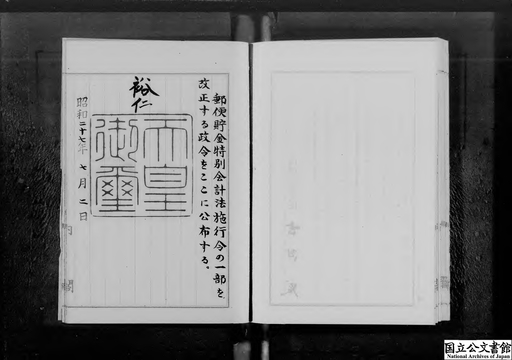 郵便貯金特別会計法施行令の一部を
改正する政令をここに公布する。
裕仁
天皇
御璽
昭和二十七年七月二日
内閣
国立公文書館
National Archives of Japan